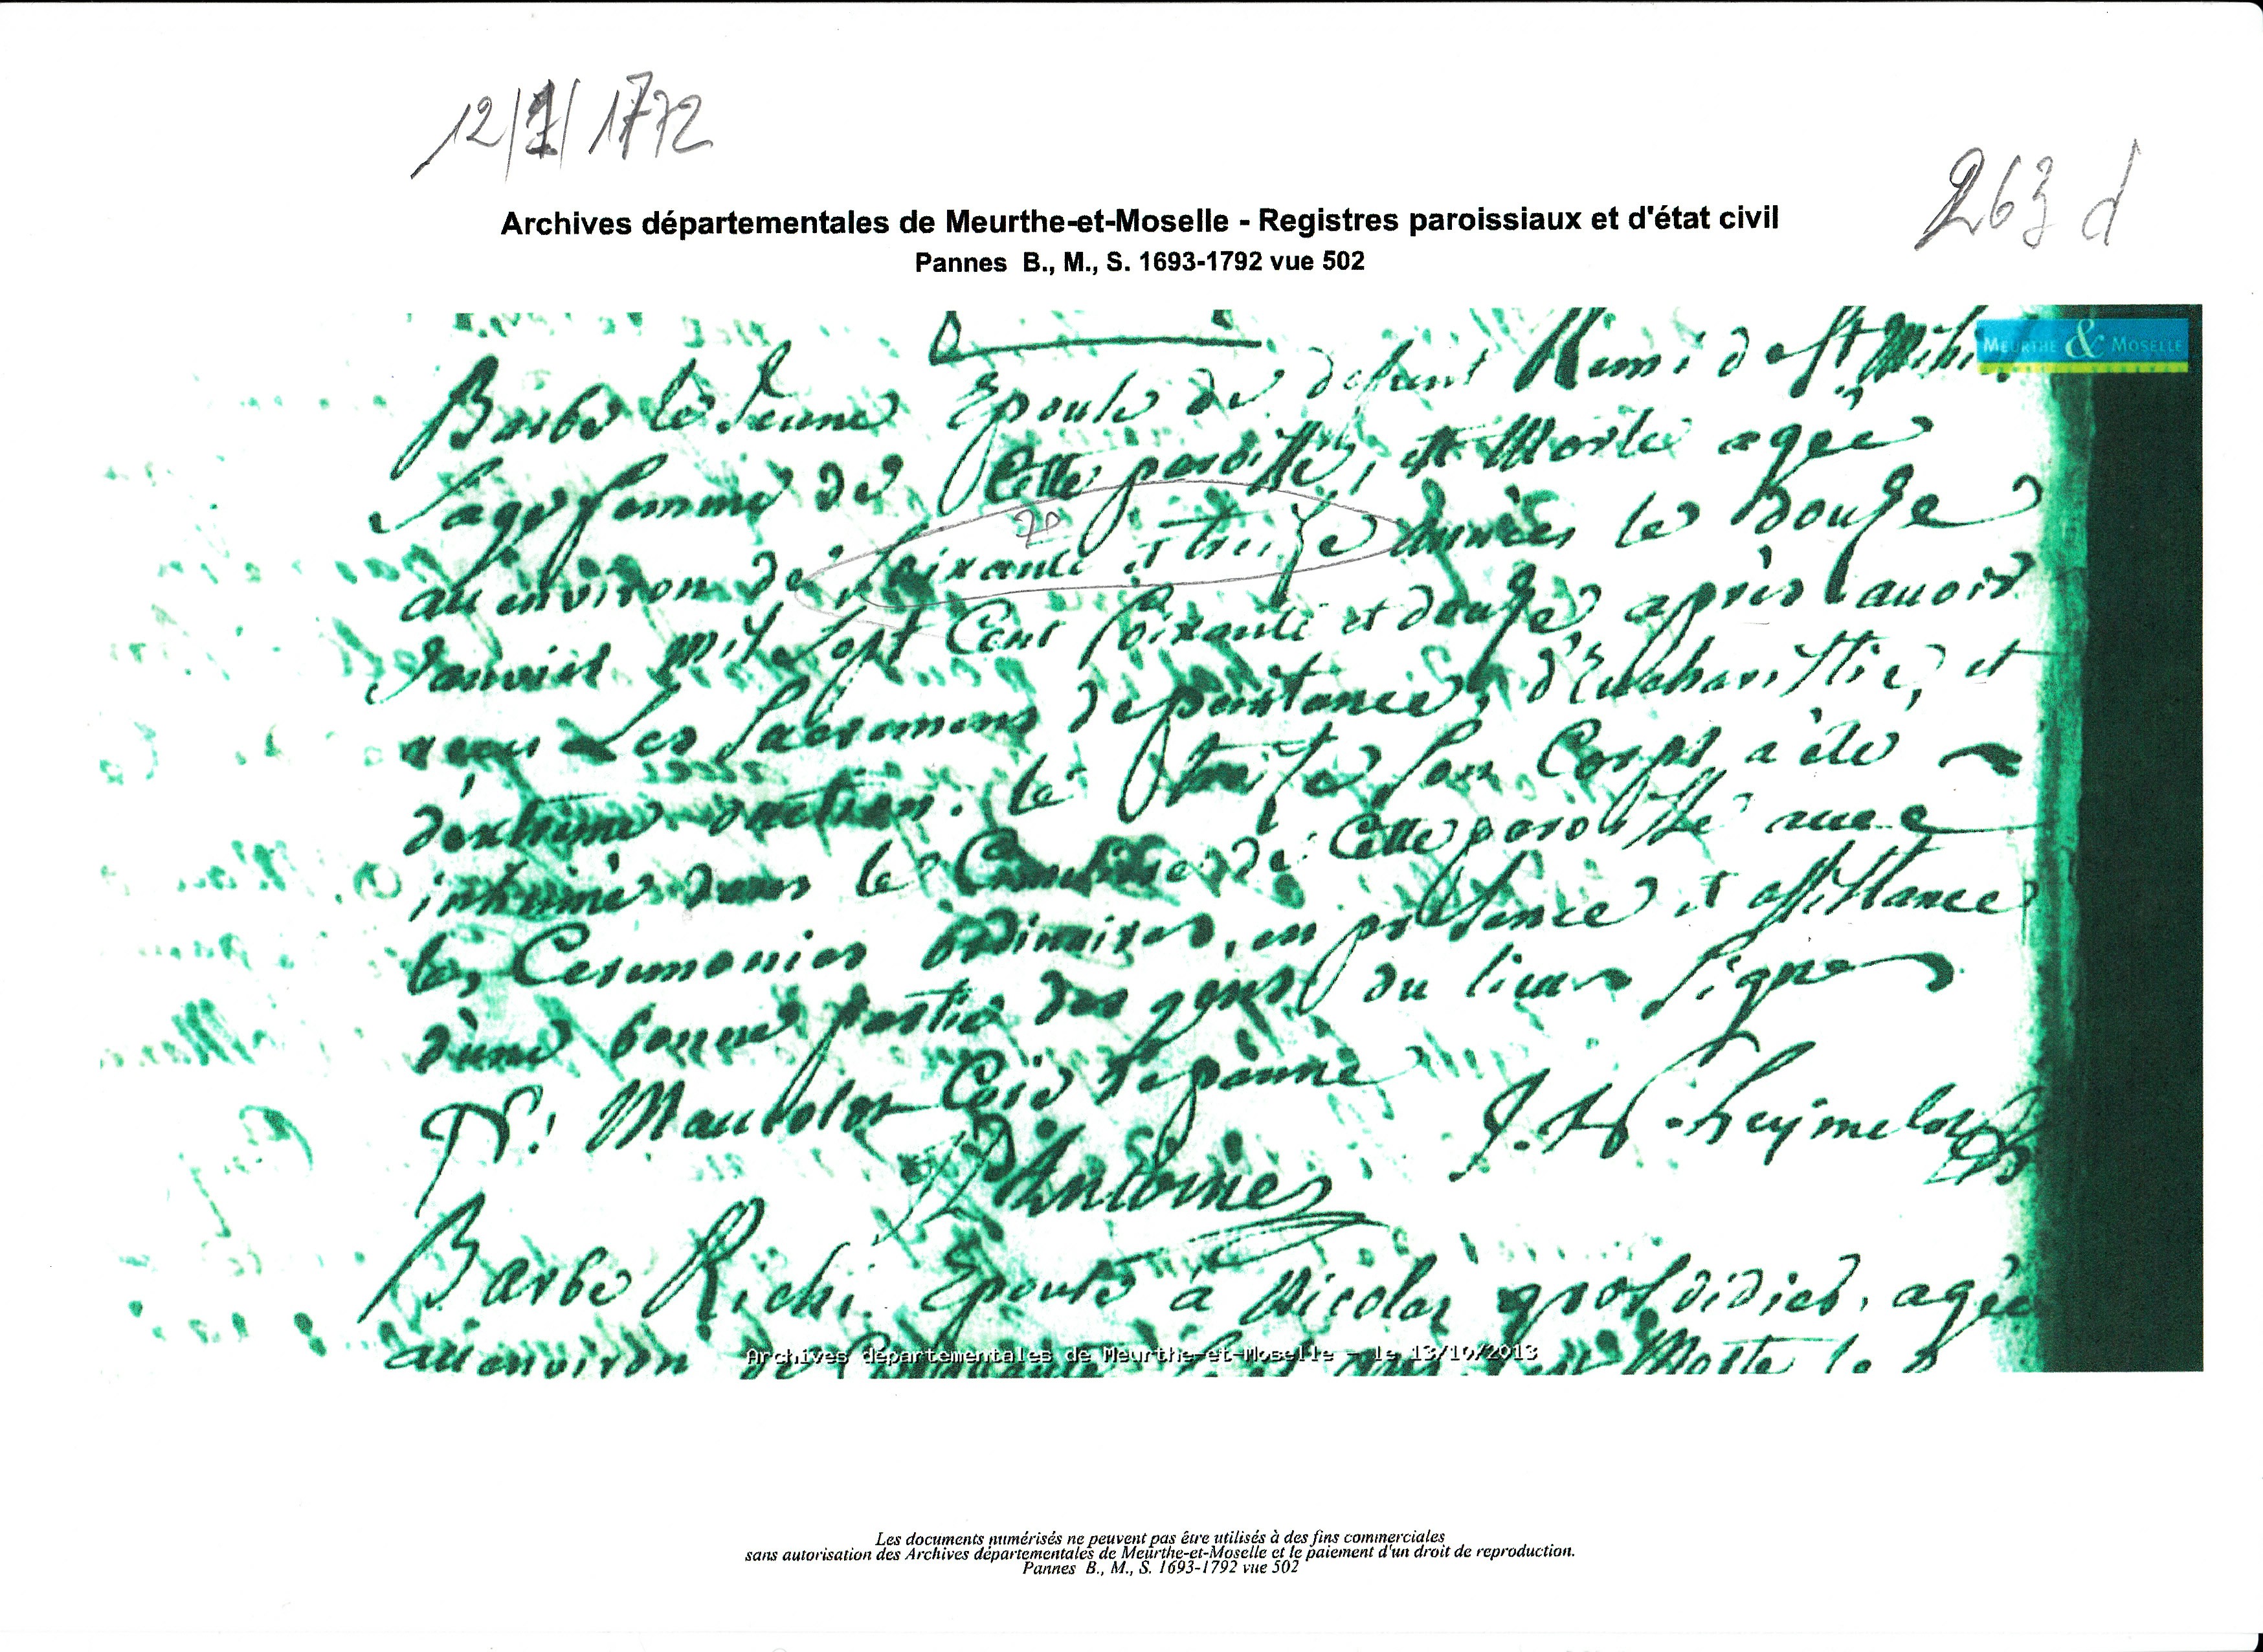 12/1/1772
263 d
Archives départementales de Meurthe-et-Moselle - Registres paroissiaux et d'état civil
Pannes B., M., S. 1693-1792 vue 502
MEURTHE & MOSELLE
Barbe le Jeune Epouse de defunt Remi de St Mihi
Sage femme de Cette paroisse, est Morte agée
au environ de soixante et treize années le douze
70
Janvier mil sept Cent soixante et douze après avoir
reçu Les Sacremens de penitance, d'Eucharistie, et
d'extreme onction. le treize son Corps a été
inhumé dans le Cimetiere de Cette paroisse avec
les Ceremonies ordinaires, en presence et assistance
d'une bonne partie des gens du lieux signe
Maucolot Curé de panne
J. H. Antoine
Barbe Richi Epouse à Nicolas grosdidier, agée
au environ de Cinquante Morte le
Archives départementales de Meurthe-et-Moselle - le 13/10/2013
Les documents numérisés ne peuvent pas être utilisés à des fins commerciales
sans autorisation des Archives départementales de Meurthe-et-Moselle et le paiement d'un droit de reproduction.
Pannes B., M., S. 1693-1792 vue 502